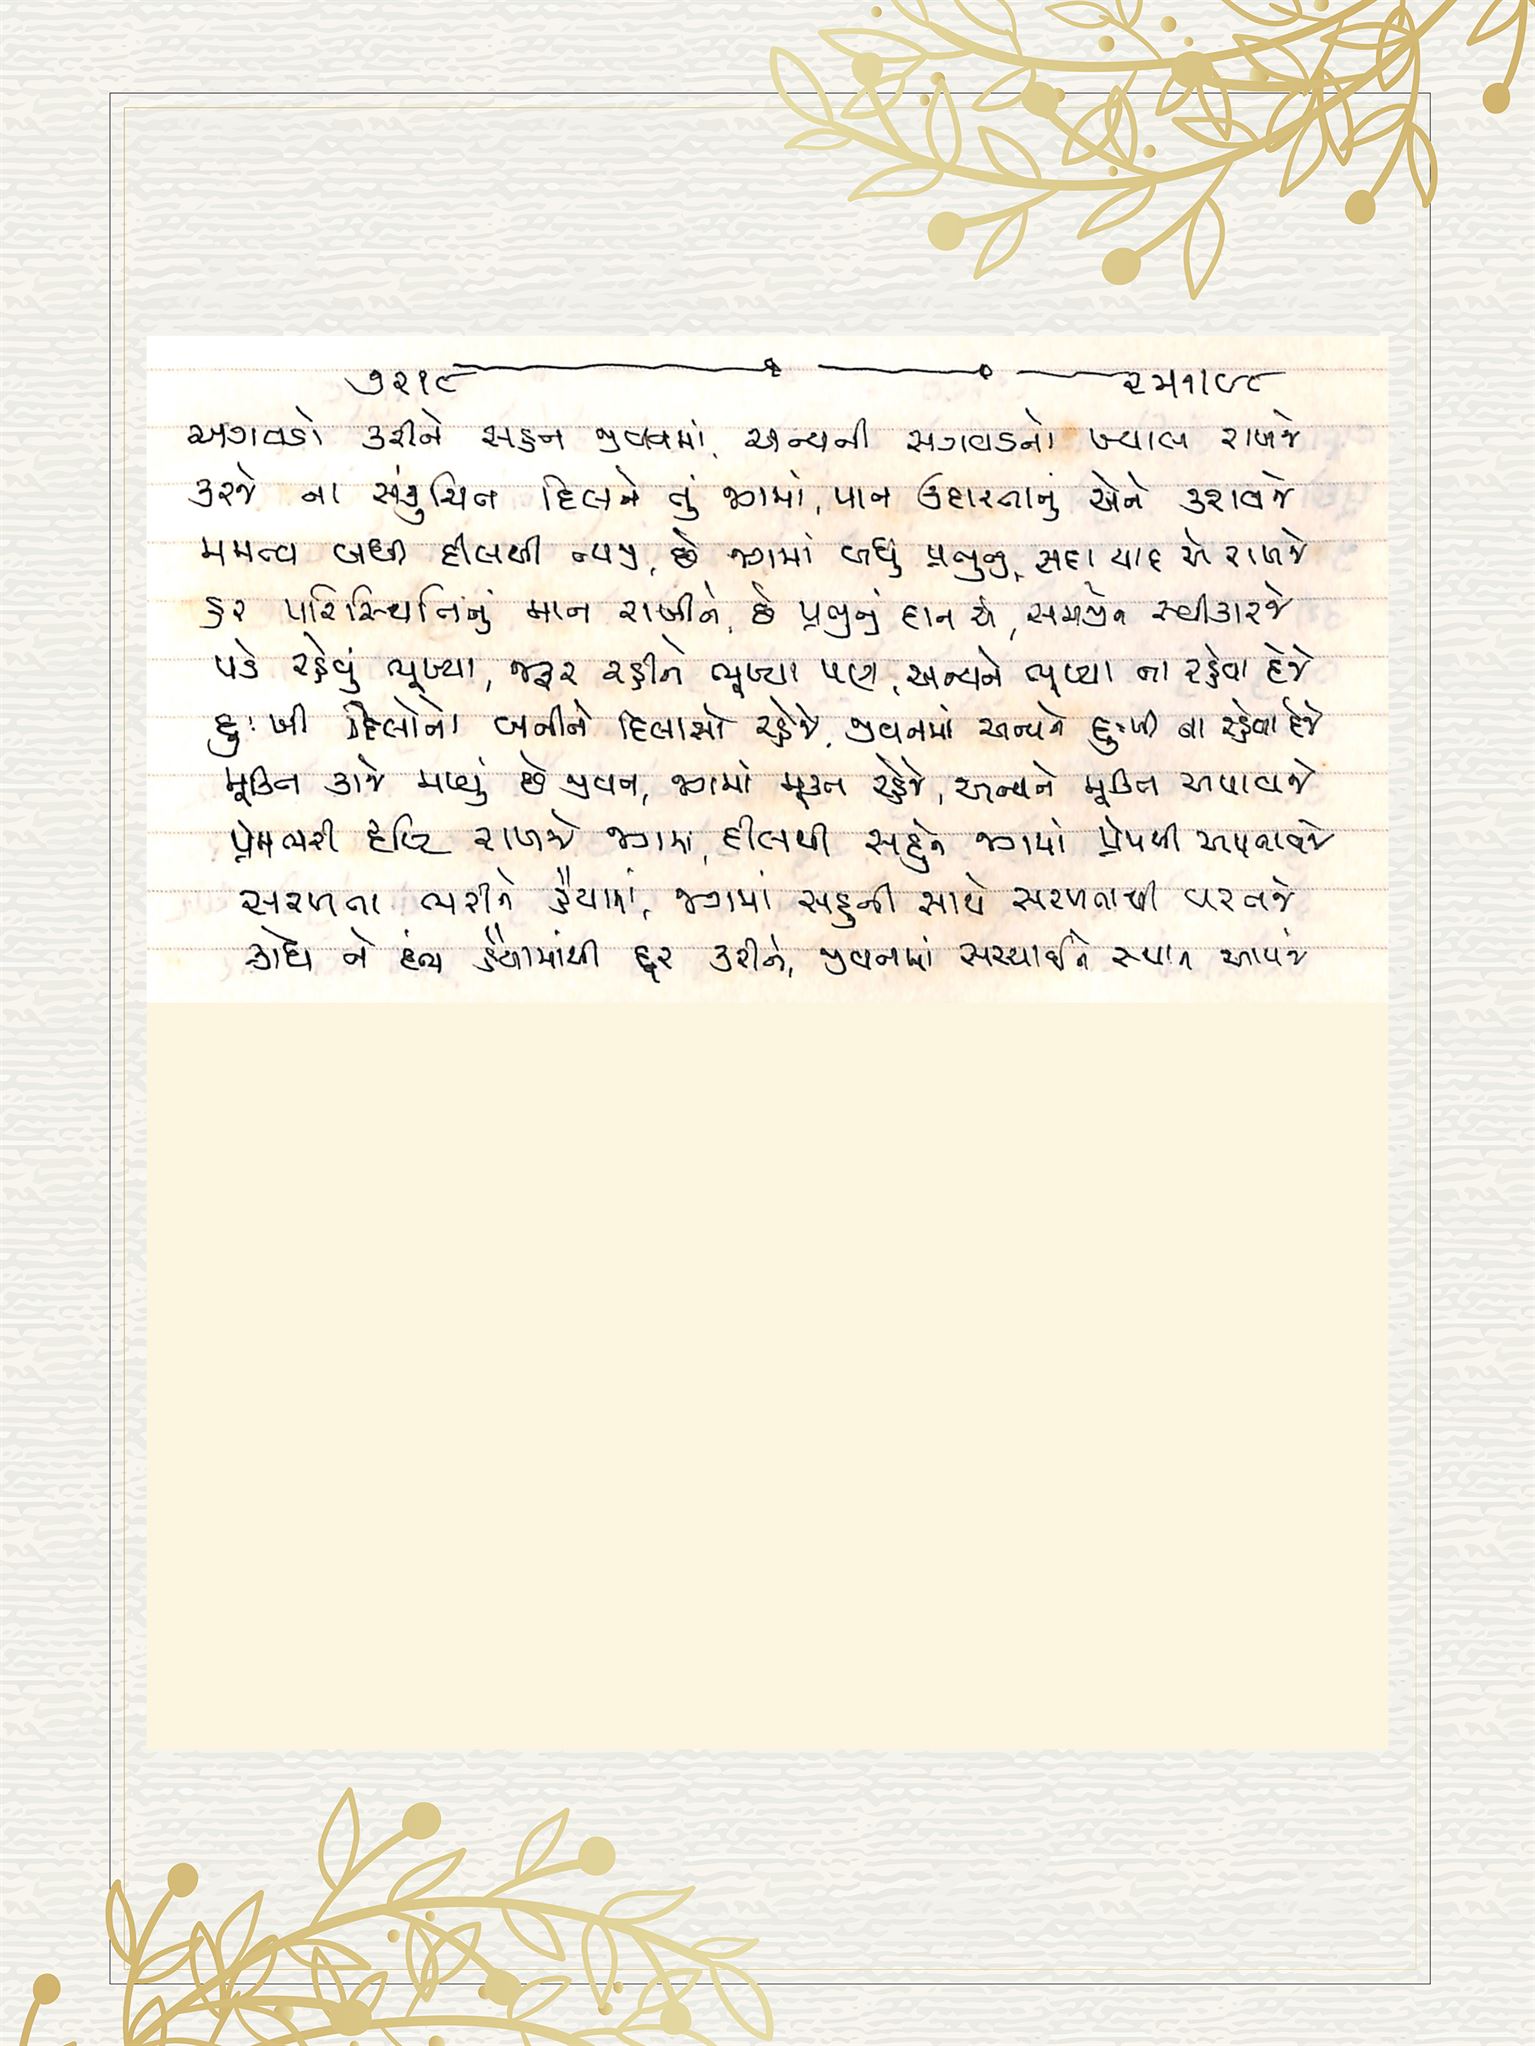 ૭૨૧૯ ૨૫।૧।૯૮
અગવડો કરીને સહન જીવનમાં, અન્યની સગવડનો ખ્યાલ રાખજે
કરજે ના સંકુચિત દિલને તું જગમાં, પાન ઉદારતાનું એને કરાવજે
મમત્વ બધી દીલથી ત્યજી, છે જગમાં બધું પ્રભુનું, સદા યાદ એ રાખજે
હર પરિસ્થિતિનું માન રાખીને, છે પ્રભુનું દાન એ, સમજીને સ્વીકારજે
પડે રહેવું ભૂખ્યા, જરૂર રહીને ભૂખ્યા પણ, અન્યને ભૂખ્યા ના રહેવા દેજે
દુઃખી દિલોનો બનીને દિલાસો રહેજે, જીવનમાં અન્યને દુઃખી ના રહેવા દેજે
મૂક્તિ કાજે મળ્યું છે જીવન, જગમાં મૂક્ત રહેજે, અન્યને મૂક્તિ અપાવજે
પ્રેમભરી દૃષ્ટિ રાખજે જગમાં, દીલથી સહુને જગમાં પ્રેમથી અપનાવજે
સરળતા ભરીને હૈયામાં, જગમાં સહુની સાથે સરળતાથી વરતજે
ક્રોધ ને દંભ હૈયામાંથી દૂર કરીને, જીવનમાં સચ્ચાઈને સ્થાન આપજે